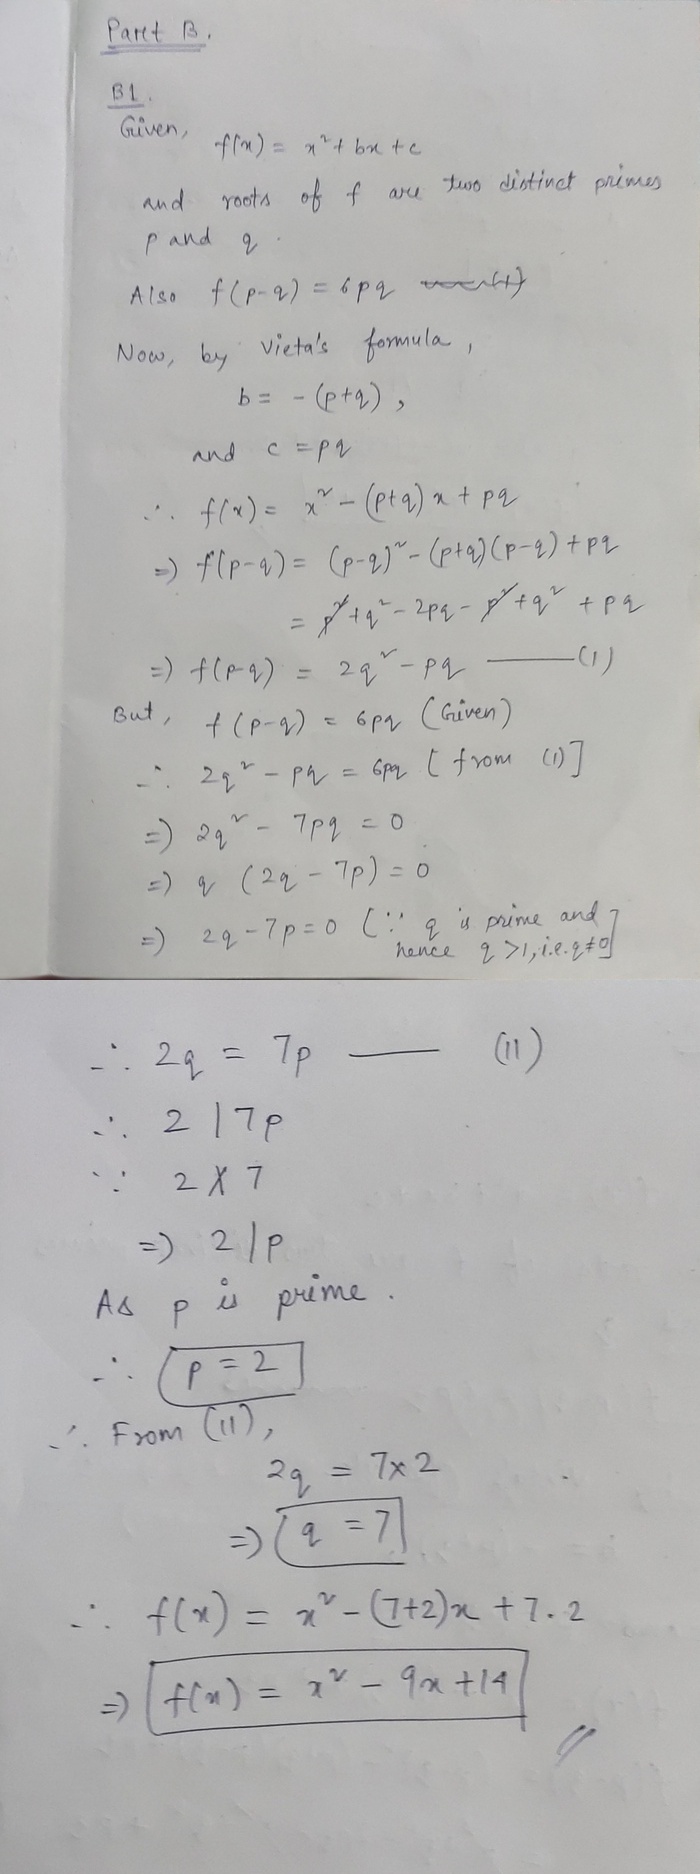 Part B.
B1.
Given,
f(x) = x² + bx + c
and roots of f are two distinct primes
p and q.
Also f(p-q) = 6pq
Now, by Vieta's formula,
b = - (p+q),
and c = pq
∴ f(x) = x² - (p+q) x + pq
⇒ f(p-q) = (p-q)² - (p+q)(p-q) + pq
= p² + q² - 2pq - p² + q² + pq
⇒ f(p-q) = 2q² - pq ——— (1)
But, f(p-q) = 6pq (Given)
∴ 2q² - pq = 6pq [from (1)]
⇒ 2q² - 7pq = 0
⇒ q (2q - 7p) = 0
⇒ 2q - 7p = 0 [∵ q is prime and
hence q > 1, i.e. q ≠ 0]
∴ 2q = 7p ——— (11)
∴ 2 | 7p
∵ 2 ∤ 7
⇒ 2 | p
As p is prime.
∴ p = 2
∴ From (11),
2q = 7×2
⇒ q = 7
∴ f(x) = x² - (7+2)x + 7.2
⇒ f(x) = x² - 9x + 14